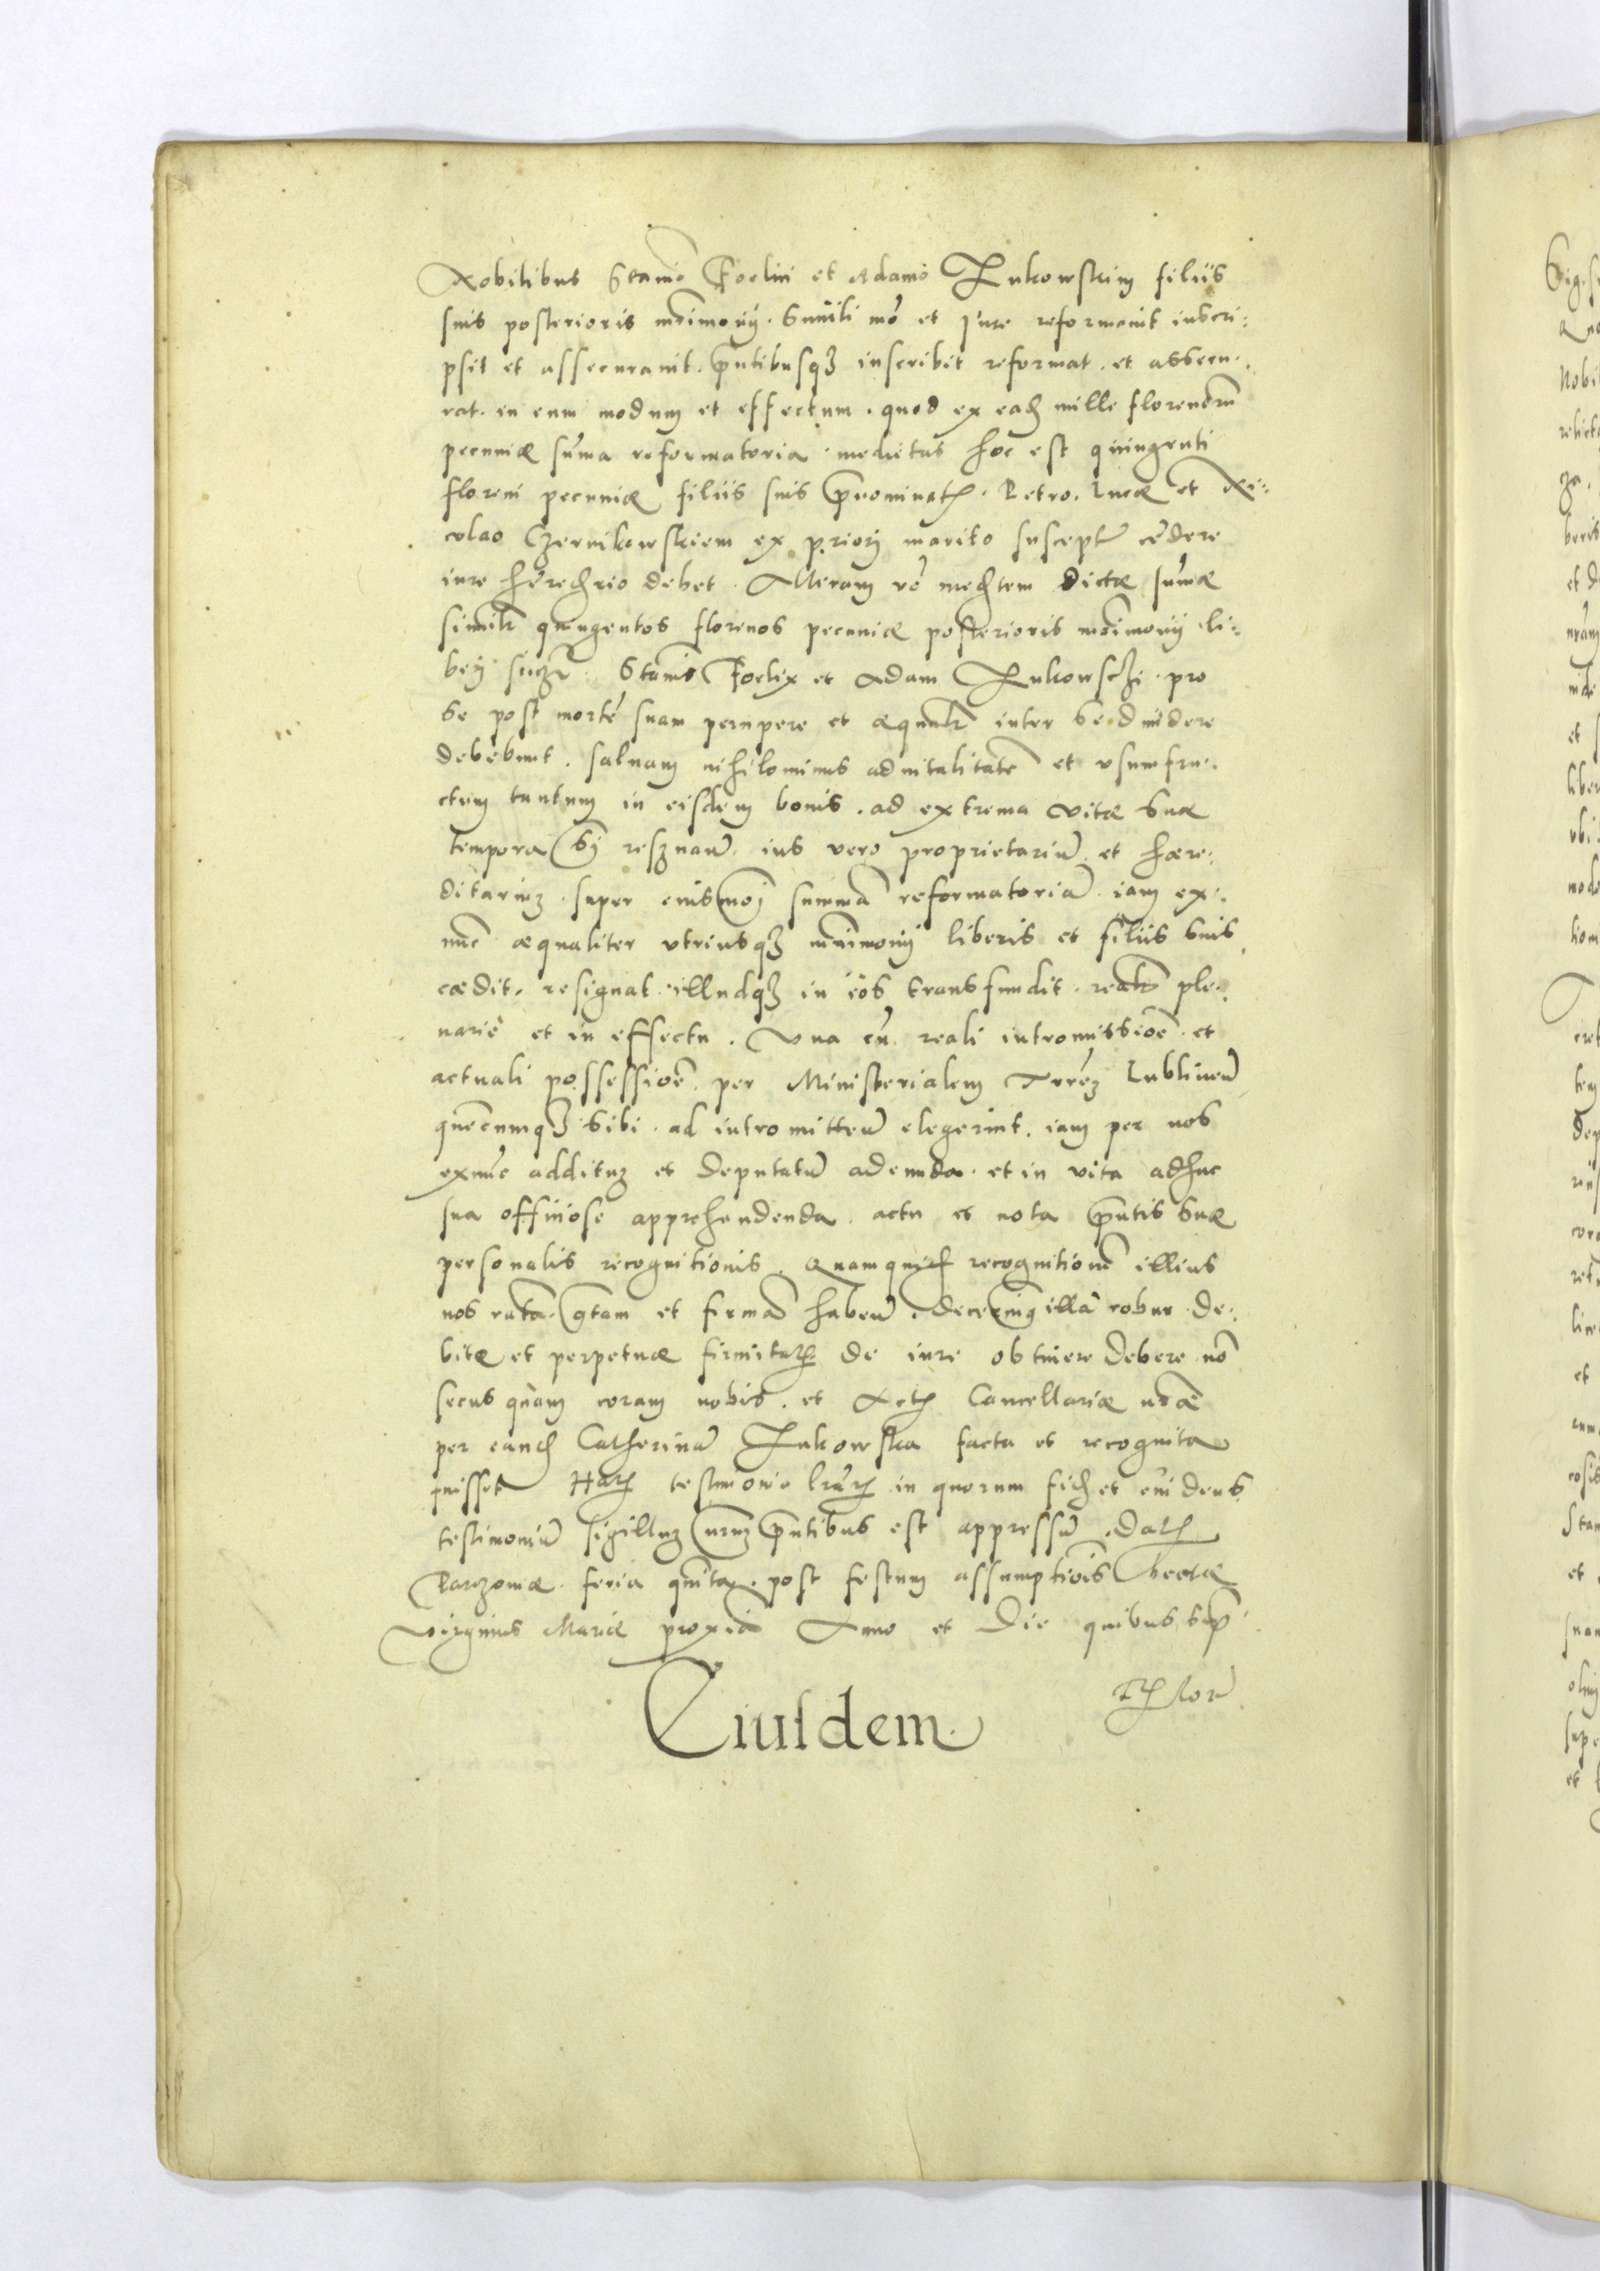 Nobilibus Stanio Foelici et Adamo Zukowskim filiis
suis posterioris mrimonij. Simili mo et Iure reformavit inscri-
psit et assecuravit. pntibusqz inscribit reformat. et assecu-
rat. in eum modum et effectum. quod ex ead mille florenorum
pecuniæ suma reformatoria medietas hoc est quingenti
floreni pecuniæ filiis suis prenominat. Petro. Lucæ et Ni-
colao Czernikowskiem ex priori marito suscept cedere
iure heredrio debet. Aliam vo medtem dictæ sumæ
similr quingentos florenos pecuniæ posterioris mrimonij li-
beri Stanis Foelix et Adam Zukowschi. pro
se post morte suam percipere et æqualr inter se dividere
debebunt. saluam nihilominus aduitalitatem et vsumfru-
ctum tantum in eisdem bonis. ad extrema vitæ suæ
tempora sij reservan. ius vero proprietariu et hære-
ditariuz super eiusmoi summa reformatoria iam ex-
nunc æqualiter vtriusqz mrimonij liberis et filiis suis
cædit. resignat illudqz in eos transfundit. realr ple-
narie et in effectu. Vna cu reali intromissioe et
actuali possessioe per Ministerialem Lublinen
quemcumqz sibi ad intromitten elegerint. iam per nos
exnunc additum et deputatum adeunda et in vita adhuc
sua officiose apprehendenda. actu et nota pntis suæ
personalis recognitionis. Quamquid recognitionem illius
nos rata gtam et firma haben. decernimq illa robur de-
bitæ et perpetuæ firmitat de iure obtinere debere no
secus quam coram nobis. et Actis Cancellariæ nræ
per eand Catherina Zukowska facta et recognita
fuisset Har testimonio lrar in quorum fid et euidens
testimoniu sigilluz nrum pntibus est appressum. Dat
Parczouiæ feria quinta post festum assumptiois beatæ
Virginis Mariæ proxia Anno et Die quibus sup
Eiusdem